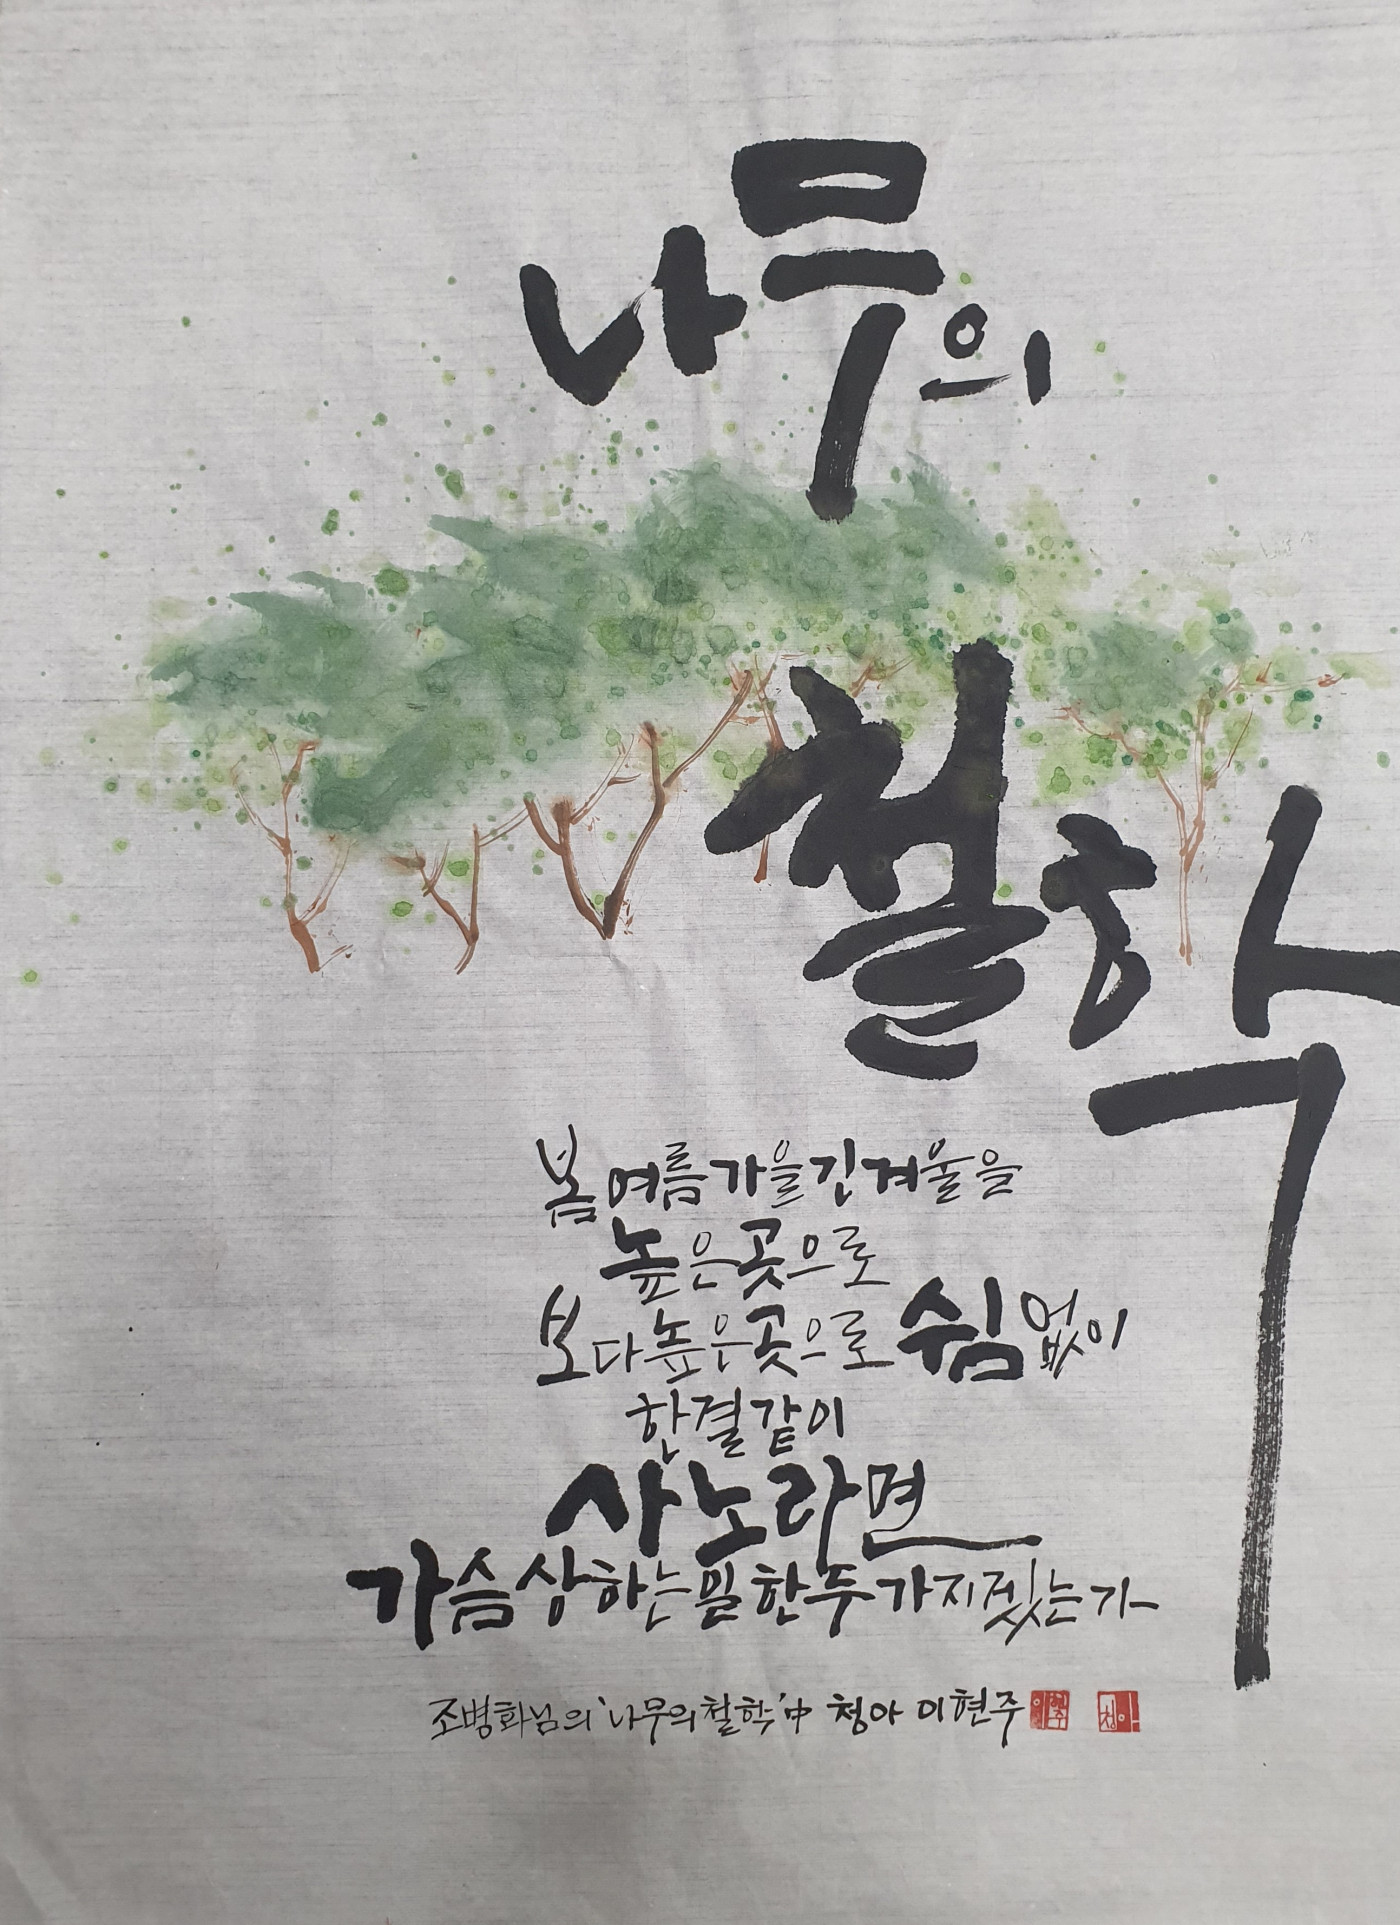 나무의
철학
봄 여름 가을 긴 겨울을
높은 곳으로
보다 높은 곳으로 쉼 없이
한결같이
사노라면
가슴 상하는 일 한두 가지겠는가
조병화님의 '나무의 철학' 中 청아 이현주
이현주 청아